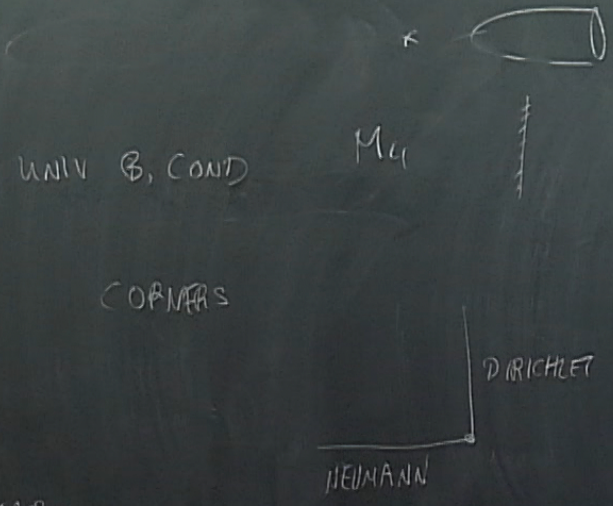 UNIV B, COND
M4
CORNERS
DIRICHLET
NEUMANN